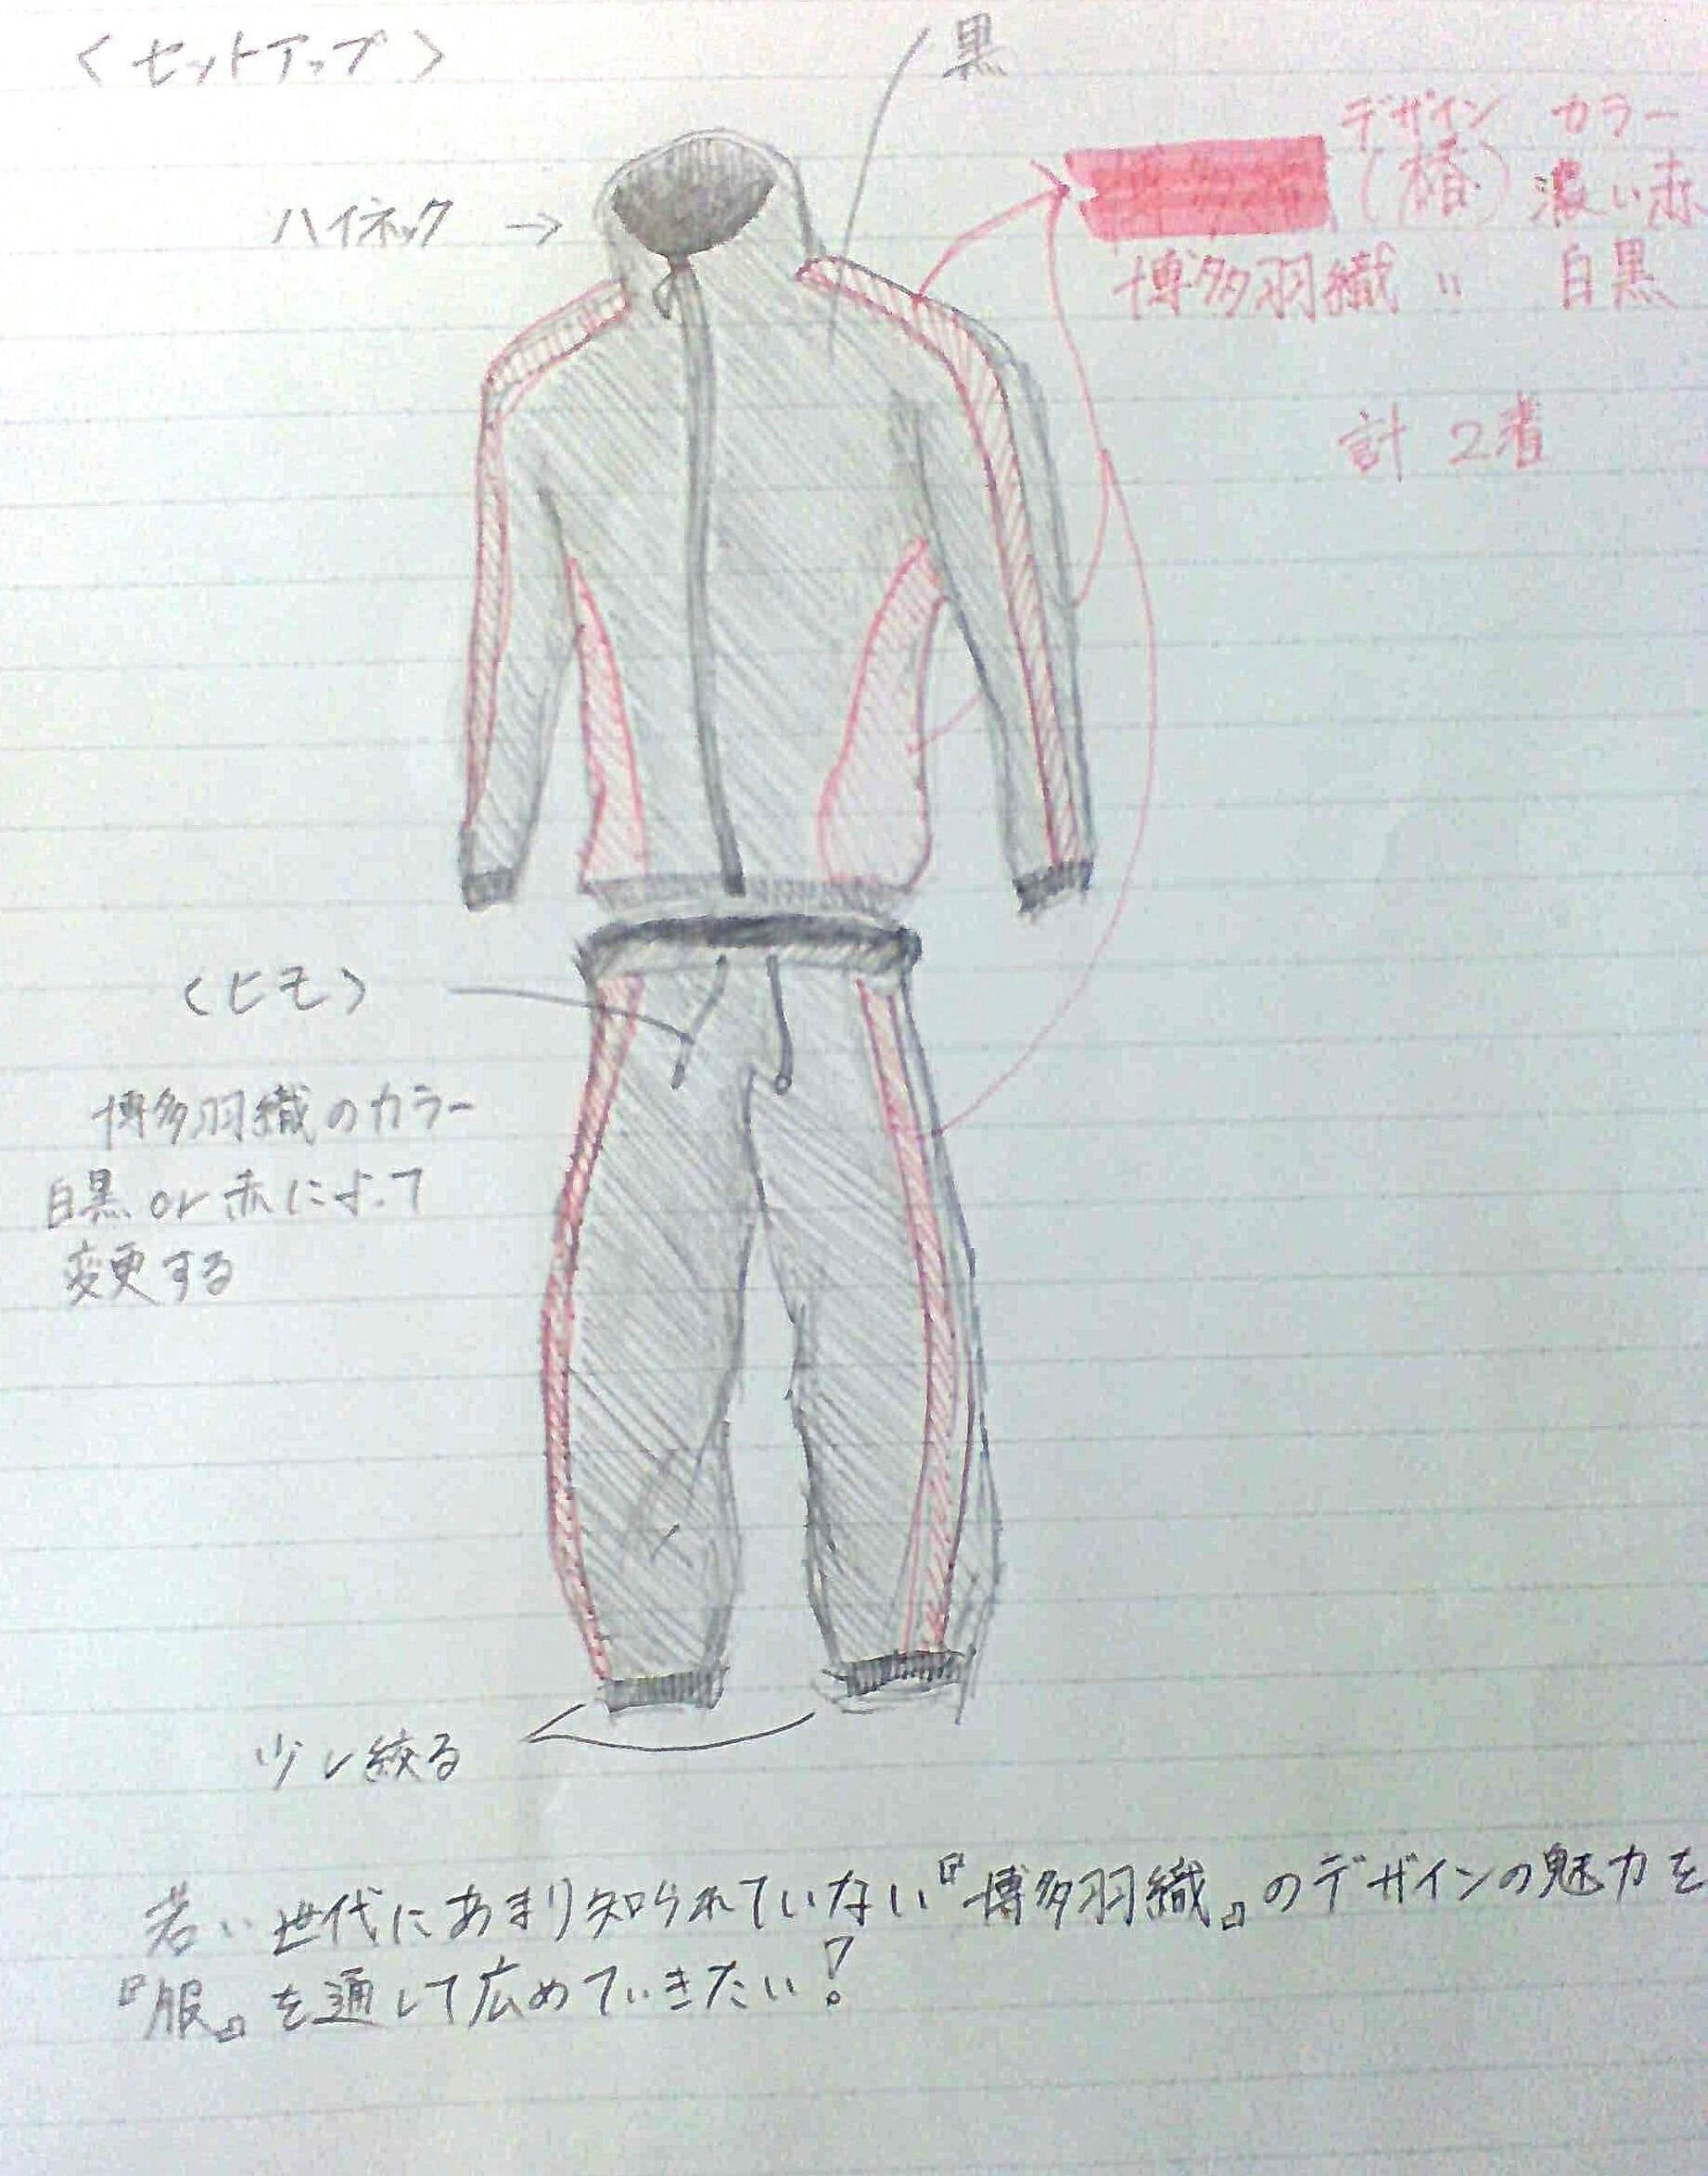 <セットアップ>
黒
デザイン カラー
(椿) 濃い赤
博多羽織 〃 白黒
ハイネック →
計 2着
<ヒモ>
博多羽織のカラー
白黒 or 赤によって
変更する
少し絞る
若い世代にあまり知られていない『博多羽織』のデザインの魅力を
『服』を通して広めていきたい!